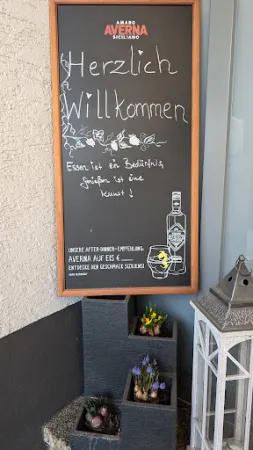 AMARO
AVERNA
SICILIANO
Herzlich
Willkommen
Essen ist ein Bedürfnis,
Genießen ist eine
Kunst!
UNSERE AFTER-DINNER-EMPFEHLUNG:
AVERNA AUF EIS €
ENTDECKE DEN GESCHMACK SIZILIENS!
AVERNA